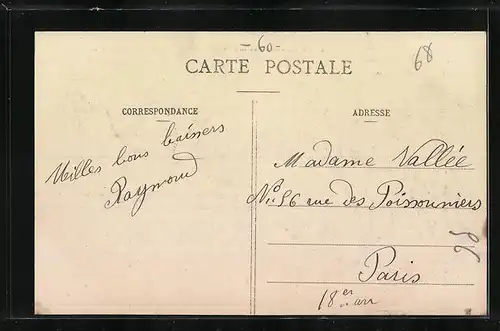 - 60 -
68
CARTE POSTALE
CORRESPONDANCE
Milles bons baisers
Raymond
ADRESSE
Madame Vallée
N° 56 rue des Poissonniers
Paris
18er arr